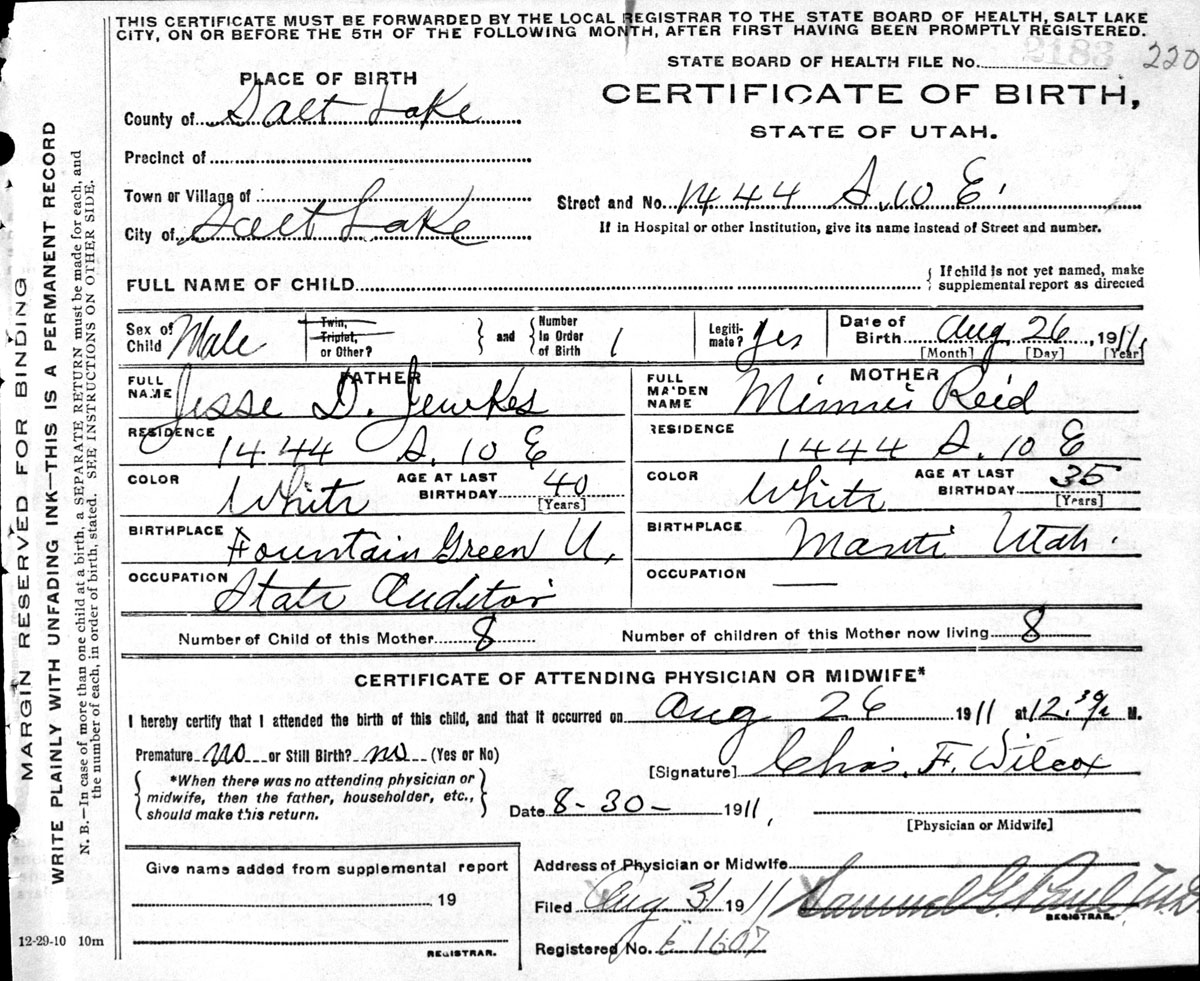 THIS CERTIFICATE MUST BE FORWARDED BY THE LOCAL REGISTRAR TO THE STATE BOARD OF HEALTH, SALT LAKE
CITY, ON OR BEFORE THE 5TH OF THE FOLLOWING MONTH, AFTER FIRST HAVING BEEN PROMPTLY REGISTERED.
2183 220
STATE BOARD OF HEALTH FILE No.
PLACE OF BIRTH
CERTIFICATE OF BIRTH,
STATE OF UTAH.
County of Salt Lake
Precinct of
Town or Village of
Street and No. 1444 S. 10 E.
City of Salt Lake
If in Hospital or other Institution, give its name instead of Street and number.
FULL NAME OF CHILD
If child is not yet named, make
supplemental report as directed
Sex of Child Male
Twin,
Triplet,
or Other?
and
Number in Order of Birth 1
Legiti-mate? yes
Date of Birth Aug 26, 1911,
[Month] [Day] [Year]
FATHER
FULL NAME Jesse D. Jewkes
MOTHER
FULL MAIDEN NAME Minnie Reid
RESIDENCE 1444 S. 10 E
RESIDENCE 1444 S. 10 E
COLOR White
AGE AT LAST BIRTHDAY 40
[Years]
COLOR White
AGE AT LAST BIRTHDAY 35
[Years]
BIRTHPLACE Fountain Green U.
BIRTHPLACE Manti Utah.
OCCUPATION State Auditor
OCCUPATION
Number of Child of this Mother 8
Number of children of this Mother now living 8
CERTIFICATE OF ATTENDING PHYSICIAN OR MIDWIFE*
I hereby certify that I attended the birth of this child, and that it occurred on Aug 26 1911 at 12.30 M.
Premature no or Still Birth? no (Yes or No)
*When there was no attending physician or
midwife, then the father, householder, etc.,
should make this return.
[Signature] Chas. F. Wilcox
Date 8-30- 1911,
[Physician or Midwife]
Give name added from supplemental report
19
REGISTRAR.
Address of Physician or Midwife
Filed Aug 31 1911 Samuel G. Paul M.D
REGISTRAR.
Registered No. 1607
12-29-10 10m
MARGIN RESERVED FOR BINDING
WRITE PLAINLY WITH UNFADING INK—THIS IS A PERMANENT RECORD
N. B.—In case of more than one child at a birth, a SEPARATE RETURN must be made for each, and
the number of each, in order of birth, stated. SEE INSTRUCTIONS ON OTHER SIDE.